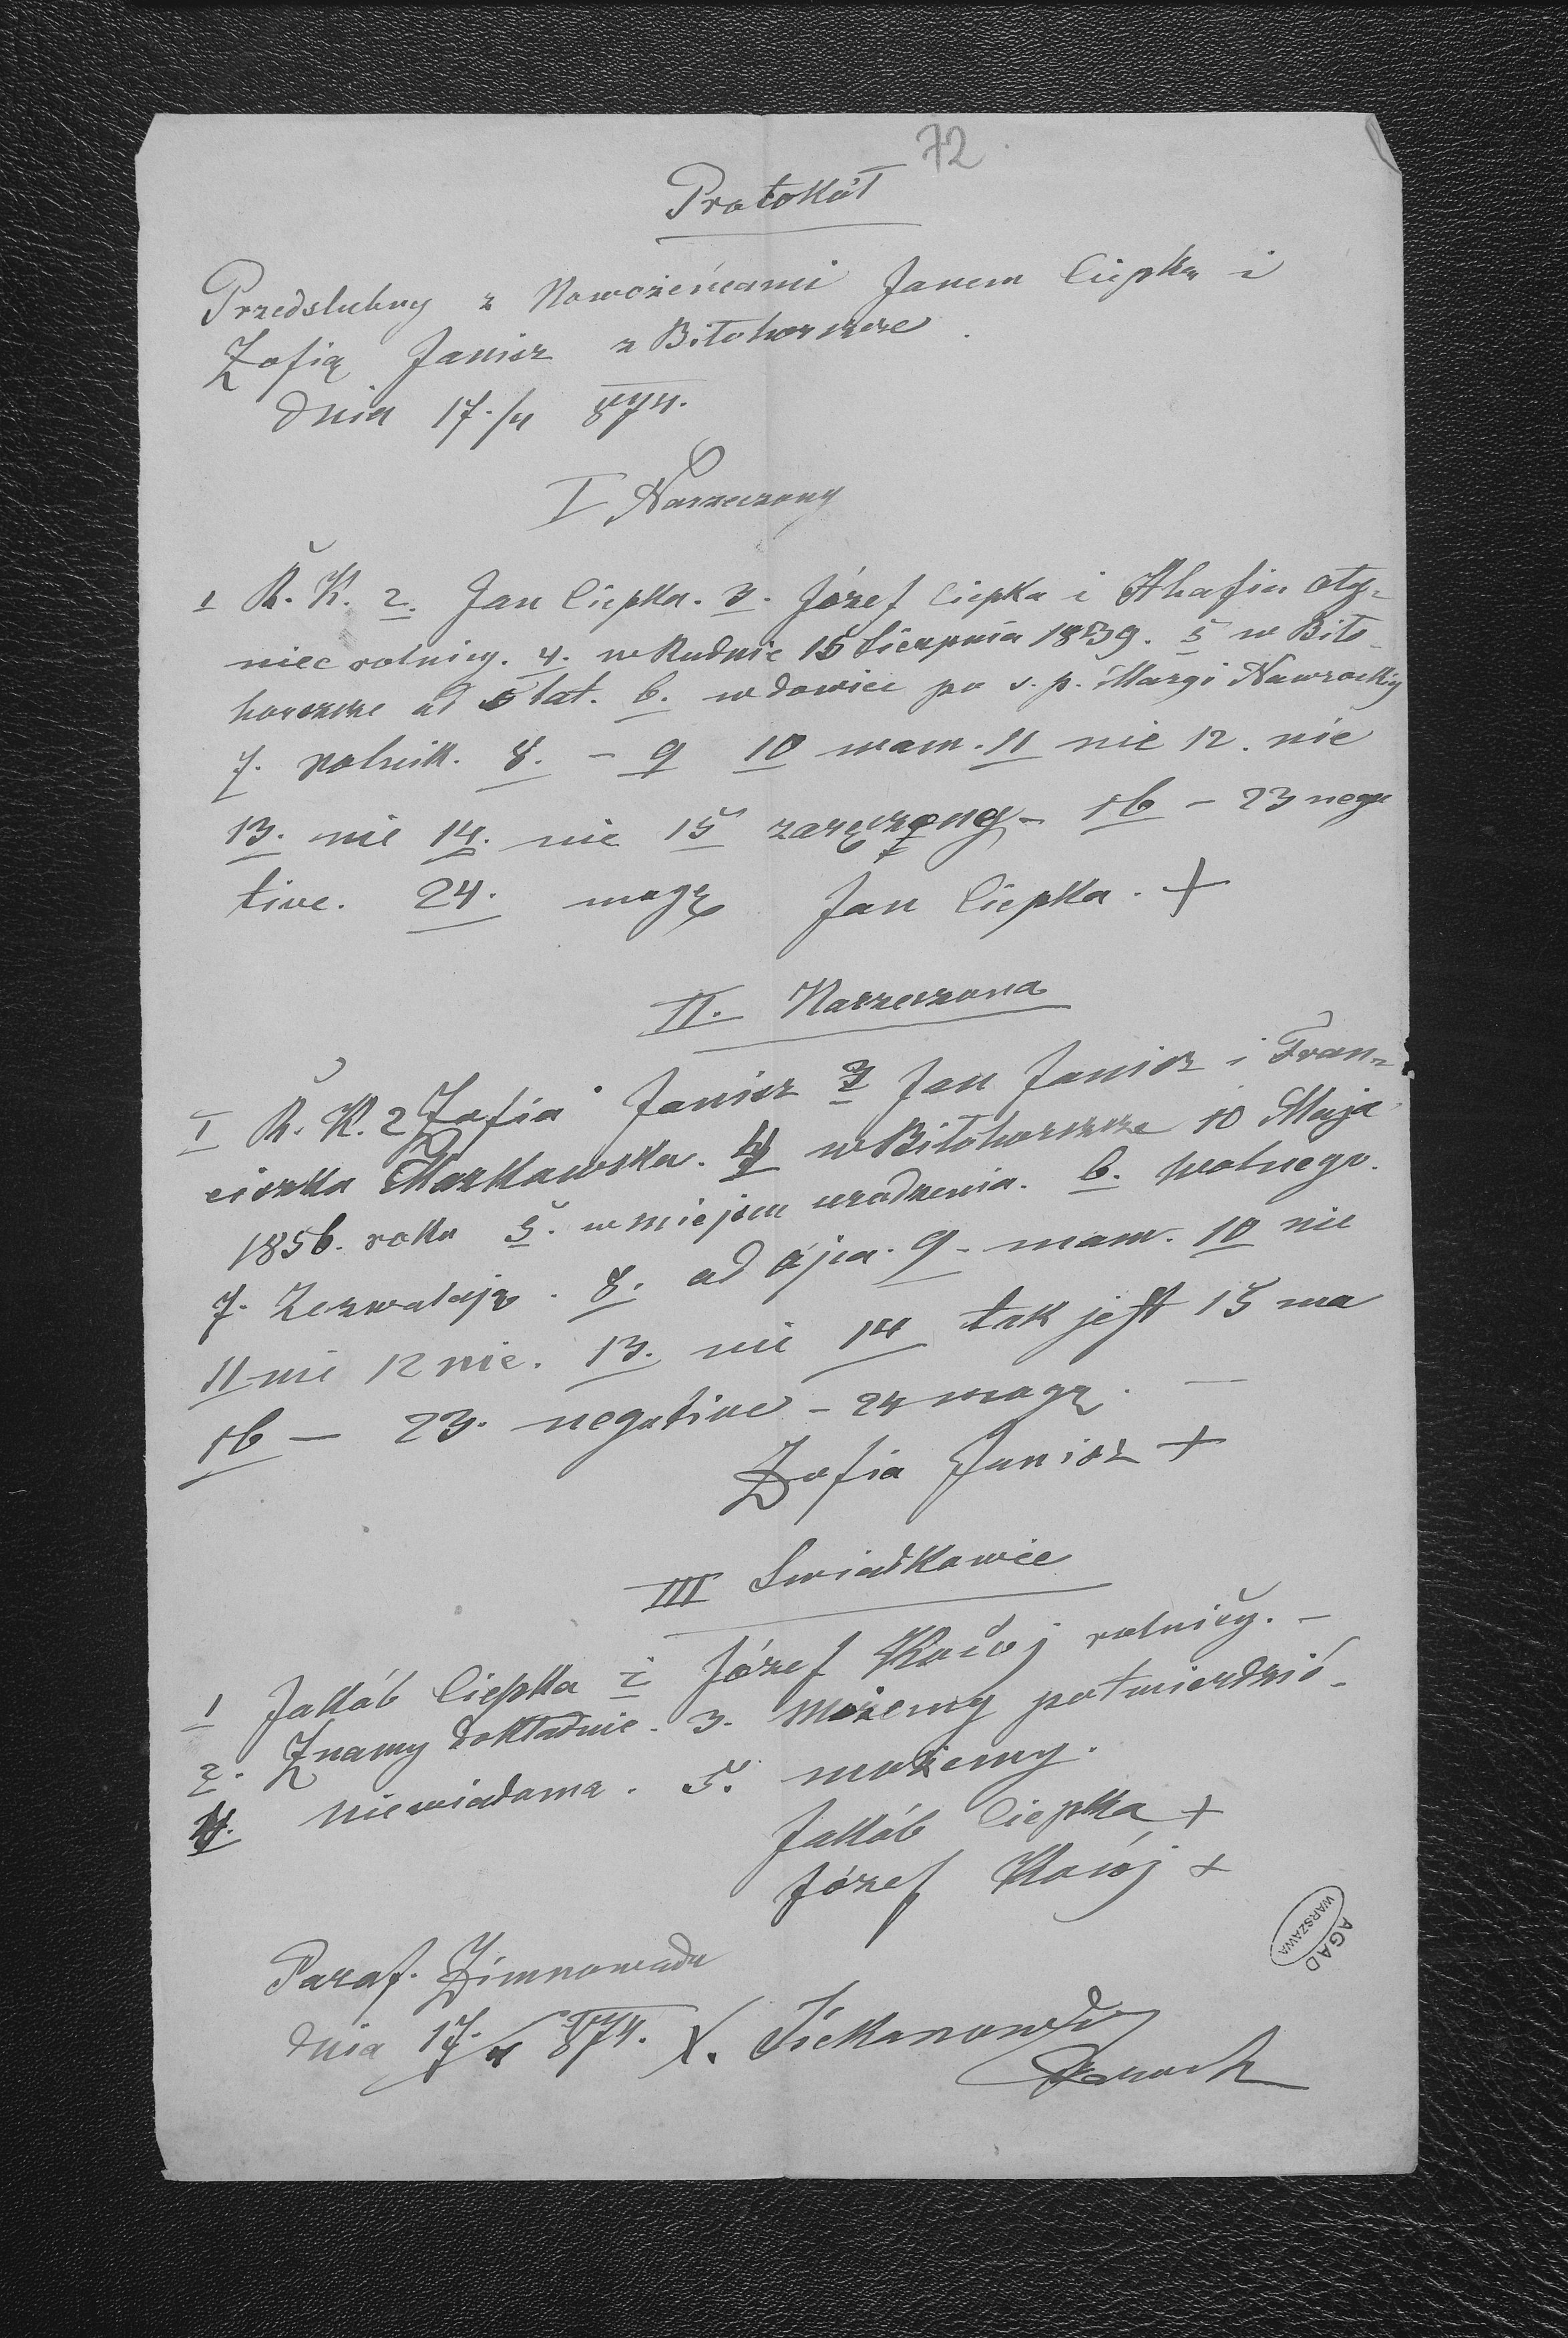 72
Protokół
Przedslubny z Nowożeńcami Janem Ciepką i
Zofią Janisz z Biłohorszcze
dnia 17./11 874.
I Narzeczony
1 R. K. 2. Jan Ciepka. 3. Józef Ciepka i Ahafia Oty-
niec rolnicy. 4. w Rudnie 15 Sierpnia 1839. 5 w Biło-
horszcze od 5 lat. 6. wdowiec po s. p. Maryi Nawrockiej
7. rolnik. 8. - 9 10 mam. 11 nie 12. nie
13. nie 14. nie 15 zaręczony - 16 - 23 nega
tive. 24. mogę Jan Ciepka. +
II. Narzeczona
1 R. K. 2 Zofia Janisz 3 Jan Janisz i Fran-
ciszka Markowska. 4 w Biłohorszcze 10 Maja
1856. roku 5. w miejscu urodzenia. 6. wolnego.
7. Zezwalają. 8. od ojca. 9. mam. 10 nie
11 nie 12 nie. 13. nie 14 tak jest 15 ma
16 - 23. negative - 24 mogę. -
Zofia Janisz +
III Swiadkowie
1 Jakób Ciepka i Józef Kowoj rolnicy. -
2. Znamy dokładnie. 3. Możemy potwierdzić.
4. niewiadoma. 5. możemy.
Jakób Ciepka +
Józef Kowój +
Paraf. Zimnowoda
dnia 17/11 874. X.
AGAD
WARSZAWA